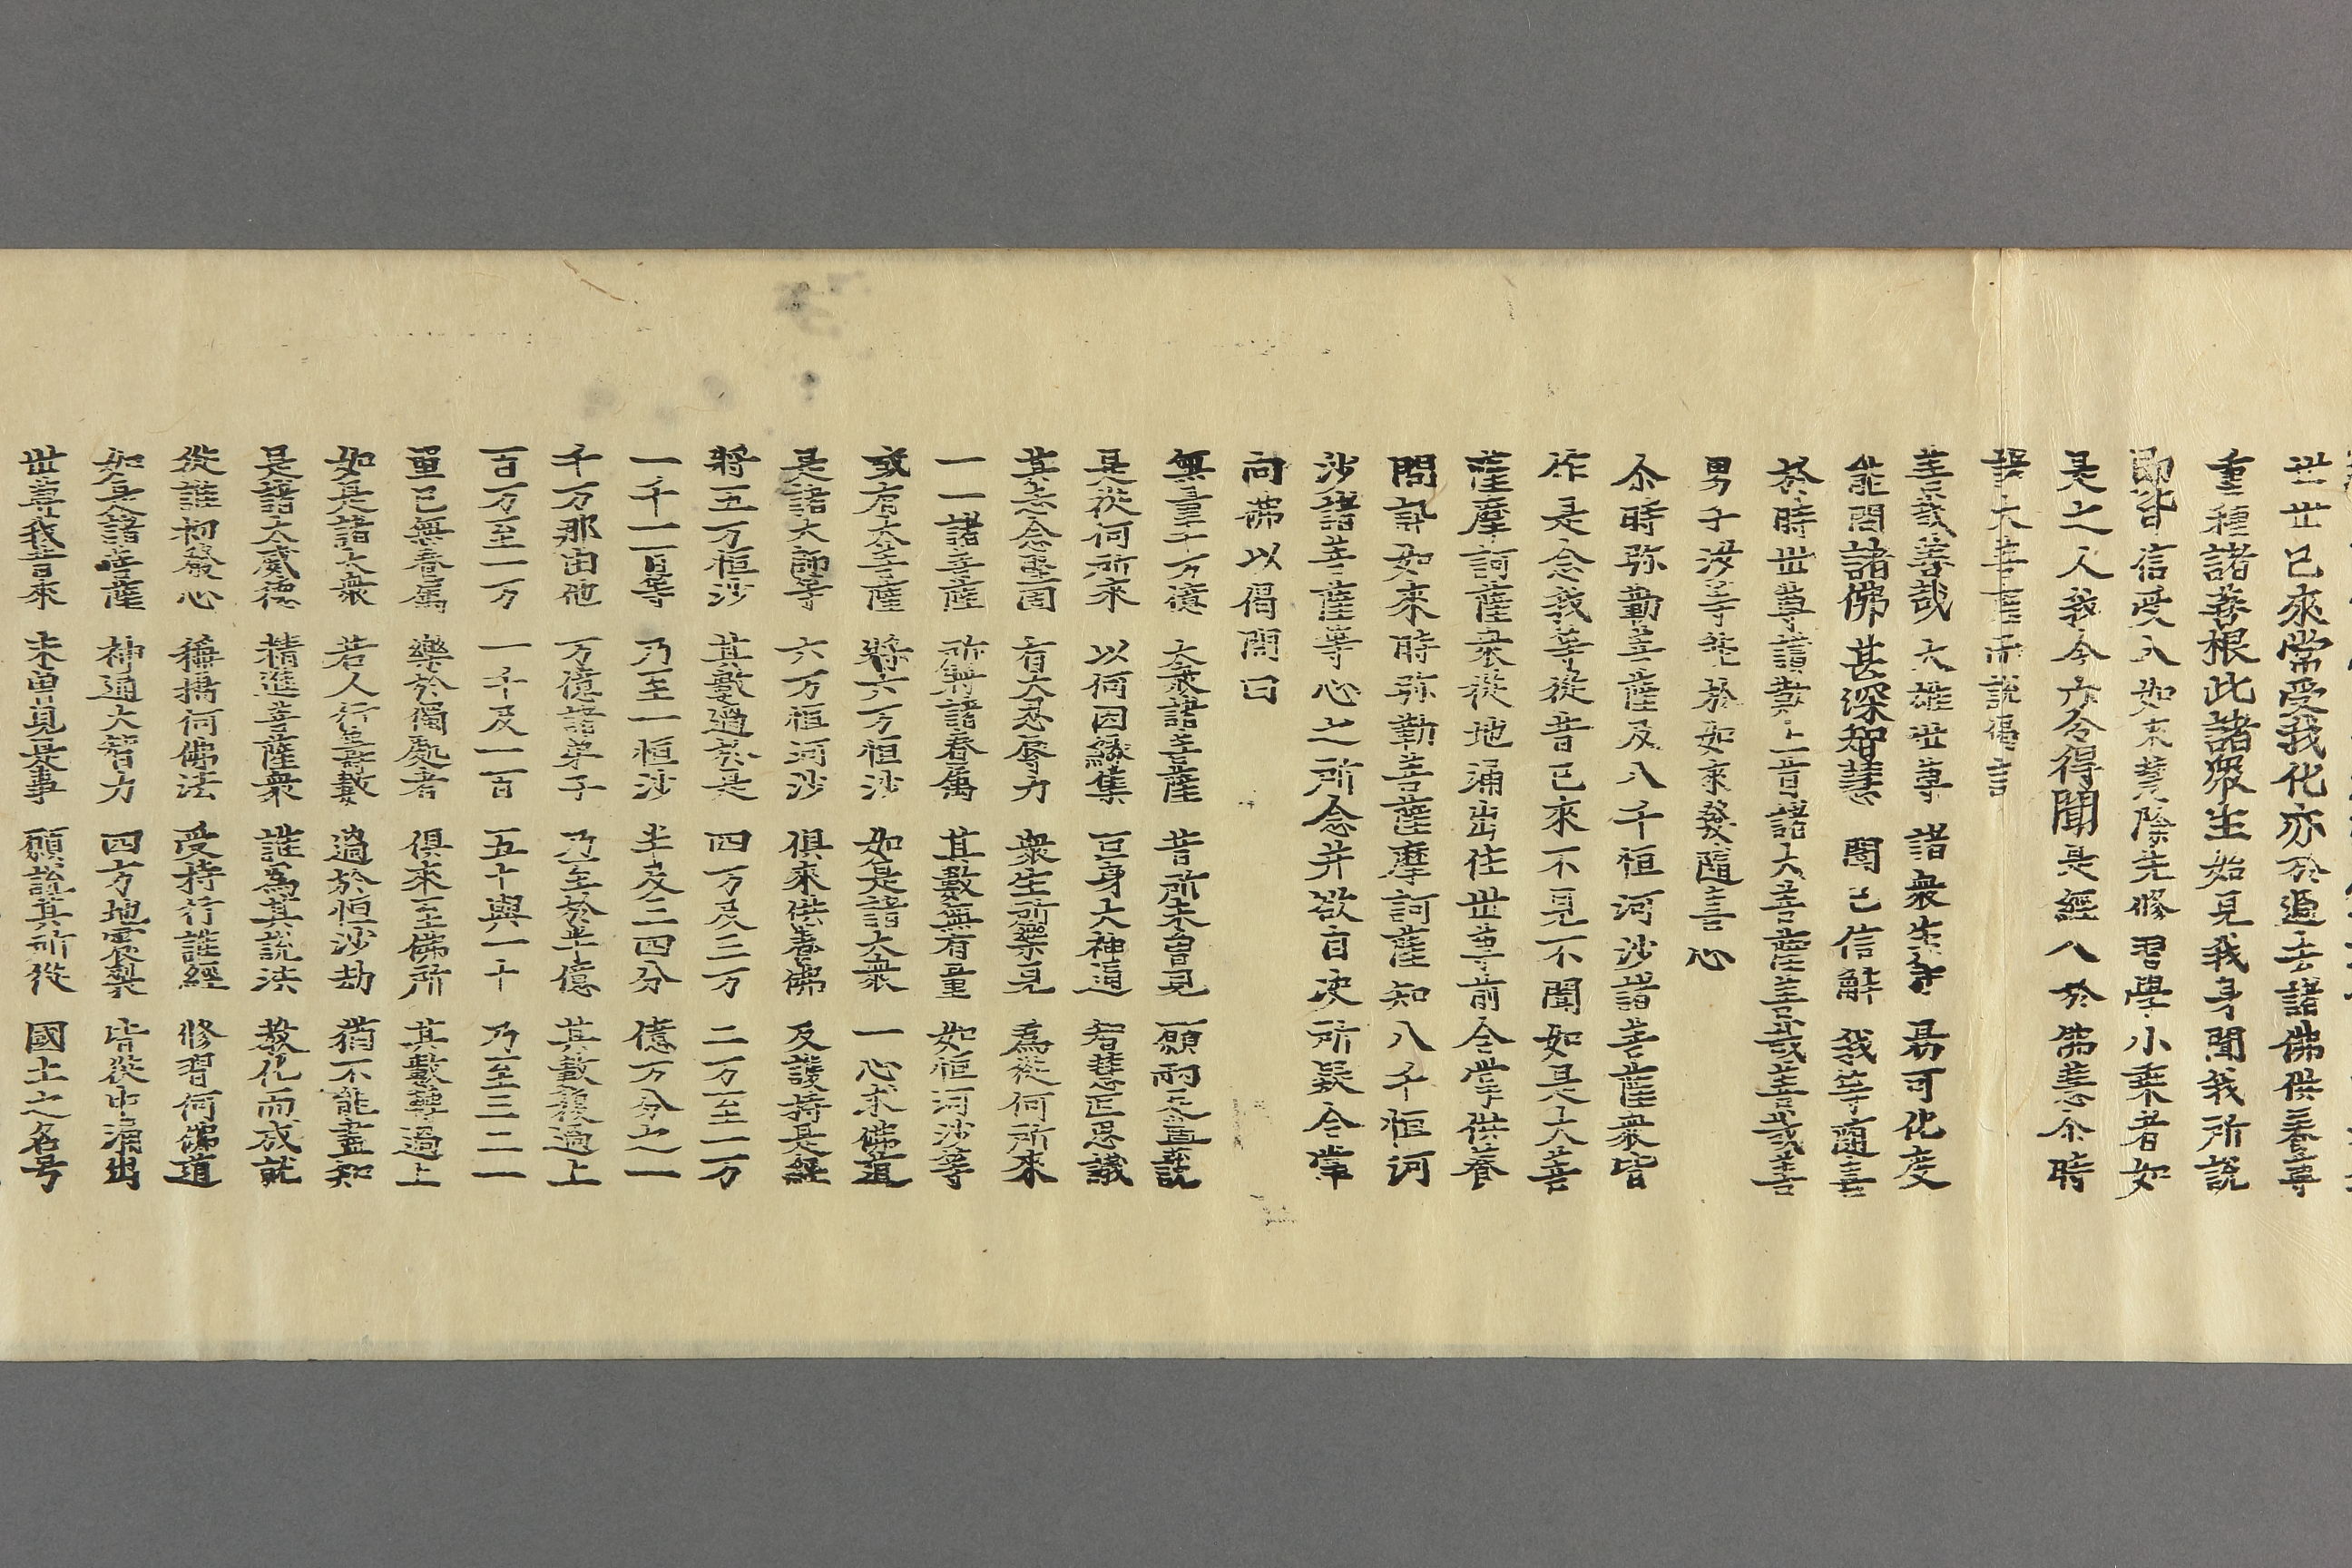 世世已來常受我化亦於過去諸佛供養尊
重種諸善根此諸衆生始見我身聞我所說
即皆信受入如来慧除先修習學小乗者如
是之人我今亦令得聞是經入於佛慧尒時
諸大菩薩而說偈言
善哉善哉　大雄世尊　諸衆生等　易可化度
能問諸佛　甚深智慧　聞已信解　我等随喜
於時世尊讃歎上首諸大菩薩善哉善哉善
男子汝等能於如來發随喜心
尒時弥勒菩薩及八千恒河沙諸菩薩衆皆
作是念我等從昔已來不見不聞如是大菩
薩摩訶薩衆從地涌出住世尊前合掌供養
問訊如來時弥勒菩薩摩訶薩知八千恒河
沙諸菩薩等心之所念并欲自决所疑合掌
向佛以偈問曰
無量千万億　大衆諸菩薩　昔所未曽見　願兩足尊說
是從何所來　以何因縁集　巨身大神通　智慧叵思議
其志念堅固　有大忍辱力　衆生所樂見　為從何所來
一一諸菩薩　所將諸眷属　其數無有量　如恒河沙等
或有大菩薩　將六万恒沙　如是諸大衆　一心求佛道
是諸大師等　六万恒河沙　俱來供養佛　及護持是經
將五万恒沙　其數過於是　四万及三万　二万至一万
一千一百等　乃至一恒沙　半及三四分　億万分之一
千万那由他　万億諸弟子　乃至於半億　其數復過上
百万至一万　一千及一百　五十與一十　乃至三二一
單己無眷属　樂於獨處者　俱來至佛所　其數轉過上
如是諸大衆　若人行籌數　過於恒沙劫　猶不能盡知
是諸大威德　精進菩薩衆　誰為其說法　教化而成就
從誰初發心　稱揚何佛法　受持行誰經　修習何佛道
如是諸菩薩　神通大智力　四方地震裂　皆從中涌出
世尊我昔來　未曽見是事　願說其所從　國土之名号